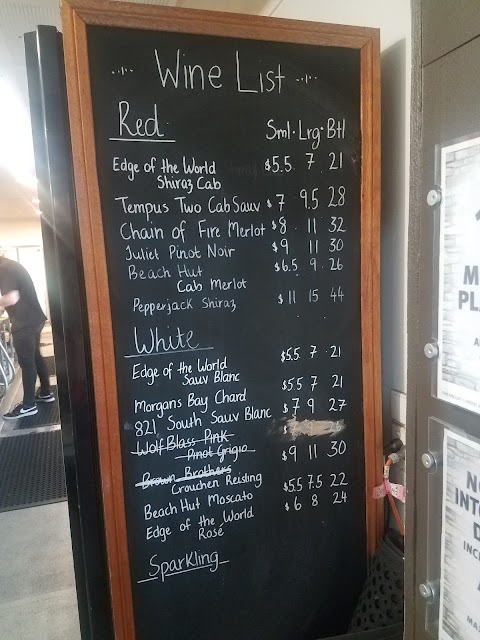 Wine List
Red Sml. Lrg. Btl
Edge of the World $5.5 7 21
Shiraz Cab
Tempus Two Cab Sauv $7 9.5 28
Chain of Fire Merlot $8 11 32
Juliet Pinot Noir $9 11 30
Beach Hut $6.5 9 26
Cab Merlot
Pepperjack Shiraz $11 15 44
White
Edge of the World $5.5 7 21
Sauv Blanc
Morgans Bay Chard $5.5 7 21
821 South Sauv Blanc $7 9 27
Wolf Blass Pink $
Pinot Grigio
Brown Brothers $9 11 30
Crouchen Reisling
Beach Hut Moscato $5.5 7.5 22
Edge of the World $6 8 24
Rosé
Sparkling